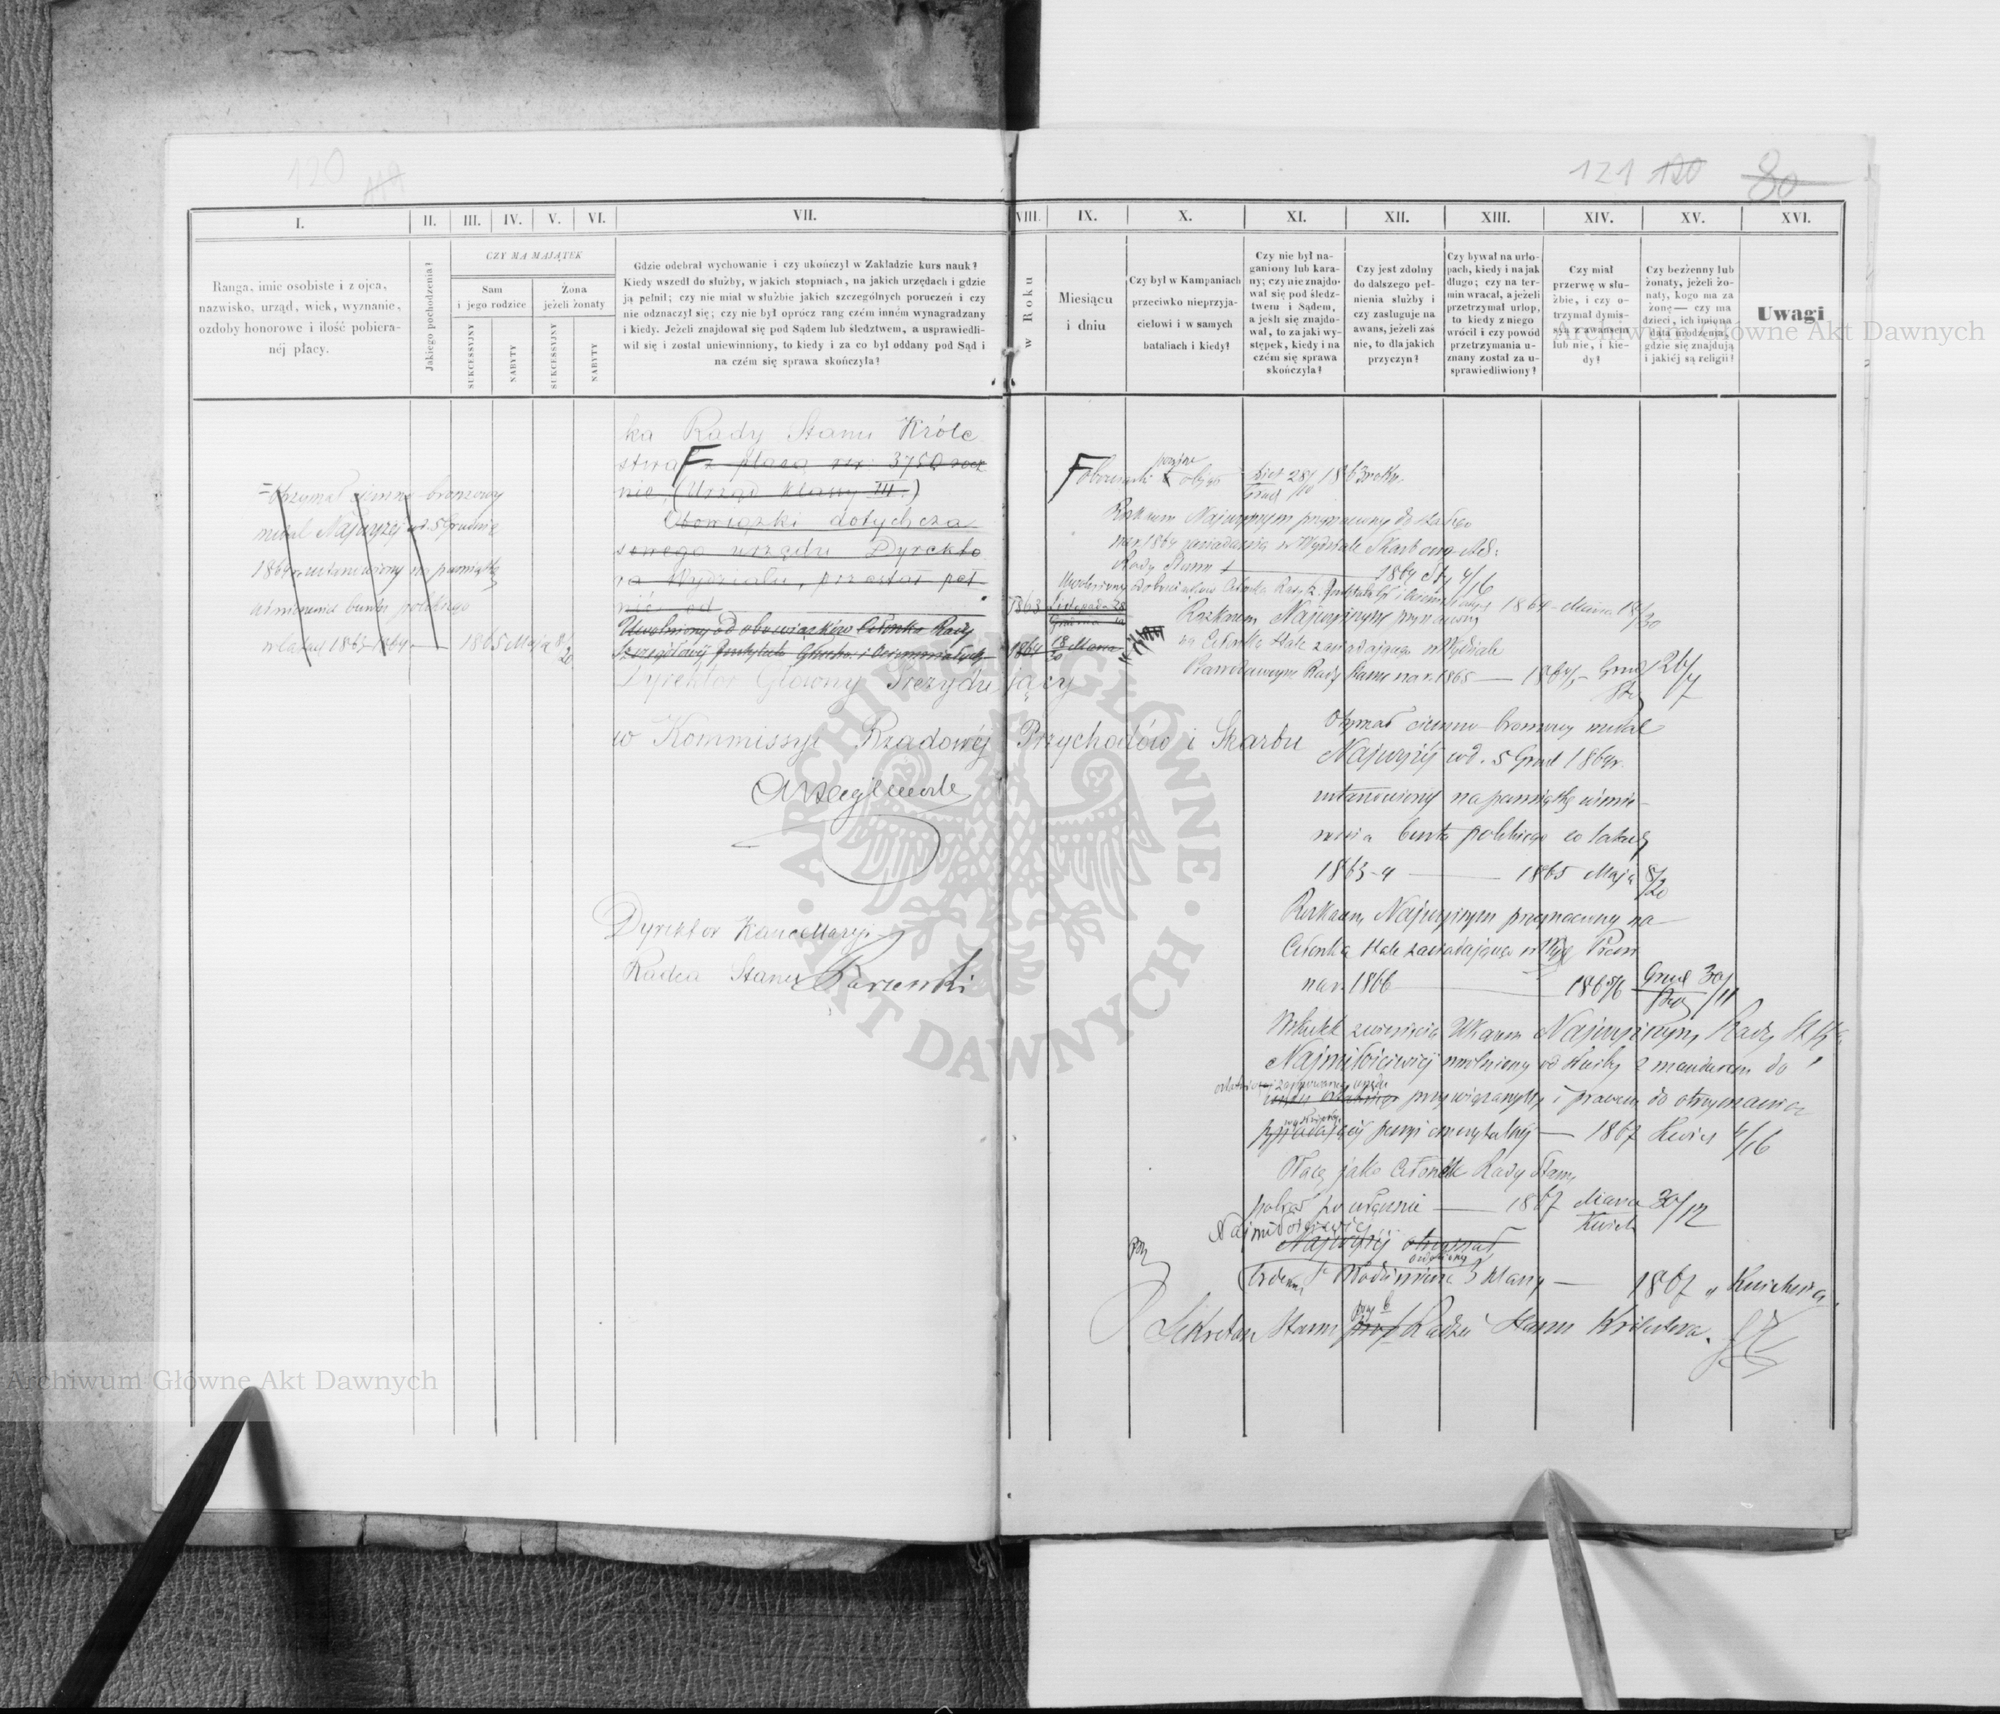 120 119
121 120 80
I. II. III. IV. V. VI. VII. VIII. IX. X. XI. XII. XIII. XIV. XV. XVI.
Ranga, imie osobiste i z ojca,
nazwisko, urząd, wiek, wyznanie,
ozdoby honorowe i ilość pobiera-
néj płacy.
Jakiego pochodzenia?
CZY MA MAJĄTEK
Sam
i jego rodzice
Żona
jeżeli żonaty
SUKCESSYJNY
NABYTY
SUKCESSYJNY
NABYTY
Gdzie odebrał wychowanie i czy ukończył w Zakładzie kurs nauk?
Kiedy wszedł do służby, w jakich stopniach, na jakich urzędach i gdzie
ją pełnił; czy nie miał w służbie jakich szczególnych poruczeń i czy
nie odznaczył się; czy nie był oprócz rang czém inném wynagradzany
i kiedy. Jeżeli znajdował się pod Sądem lub śledztwem, a usprawiedli-
wił się i został uniewinniony, to kiedy i za co był oddany pod Sąd i
na czém się sprawa skończyła?
w Roku
Miesiącu
i dniu
Czy był w Kampaniach
przeciwko nieprzyja-
cielowi i w samych
bataliach i kiedy?
Czy nie był na-
ganiony lub kara-
ny; czy nie znajdo-
wał się pod śledz-
twem i Sądem,
a jeśli się znajdo-
wał, to za jaki wy-
stępek, kiedy i na
czém się sprawa
skończyła?
Czy jest zdolny
do dalszego peł-
nienia służby i
czy zasługuje na
awans, jeżeli zaś
nie, to dla jakich
przyczyn?
Czy bywał na urlo-
pach, kiedy i na jak
długo; czy na ter-
min wracał, a jeżeli
przetrzymał urlop,
to kiedy z niego
wrócił i czy powód
przetrzymania u-
znany został za u-
sprawiedliwiony?
Czy miał
przerwę w słu-
żbie, i czy o-
trzymał dymis-
syą z awansem
lub nie, i kie-
dy?
Czy bezżenny lub
żonaty, jeżeli żo-
naty, kogo ma za
żonę — czy ma
dzieci, ich imiona
data urodzenia,
gdzie się znajdują
i jakiéj są religii?
Uwagi
Archiwum Główne Akt Dawnych
= Otrzymał ciemno bronzowy
medal Najwyżej ud. 5 Grudnia
1864 r. ustanowiony na pamiątkę
uśmierzenia buntu polskiego
w latach 1863-1864 — 1865 Maja 8/20
ka Rady Stanu Króle
stwa z płacą rsr: 3750 rocz
nie, (Urząd klassy III.)
Obowiązki dotychcza
sowego urzędu Dyrekto
ra Wydziału, przestał peł
nić od
1863 Listopada 28 Grudnia 10
Uwolniony od obowiązków Członka Rady
Szczegółowej Instytutu Głucho. i Ociemniałych
1864 18 Marca 30
Dyrektor Główny Prezydujący
w Kommissyi Rządowéj Przychodów i Skarbu
Dyrektor Kancellaryi
Radca Stanu
objął List 28/10 Grud 1863 roku
Rozkazem Najwyższym przeznaczony do stałego
na r. 1864 zasiadania w Wydziale Skarbowo Ad:
Rady Stanu — 1864 Sty 4/16
Rozkazem Najwyższym przeznaczony
na Członka stale zasiadającego w Wydziale
Rady Stanu na r. 1865 — 1864/5 Grud 26/7 Stycz
Otrzymał ciemno bronzowy medal
Najwyżéj ud. 5 Grud 1864 r.
ustanowiony na pamiątkę uśmie-
rzenia buntu polskiego w latach
1863-4 — 1865 Maja 8/20
Rozkazem Najwyższym przeznaczony na
Członka stale zasiadającego w
na r. 1866 — 1865/6 Grud 30/11
Wskutek zwinięcia Ukazem Najwyższym Rady St. Kr.
Najmiłościwiéj uwolniony od służby z mundurem do
przywiązanym i prawem do otrzymania
pensyi emerytalnej — 1867 Kwiet 4/16
Płacę jako Członek Rady Stanu
pobrał po włącznie — 1867 Marca 30/12 Kwiet
Najmiłościwiej
Najwyżéj otrzymał
ozdobiony
Orderem Sgo Włodzimierza 3 klassy — 1867 Kwietnia
Sekretarz Stanu przy Radzie Stanu Królestwa.
Archiwum Główne Akt Dawnych
ARCHIWUM GŁÓWNE · AKT DAWNYCH ·